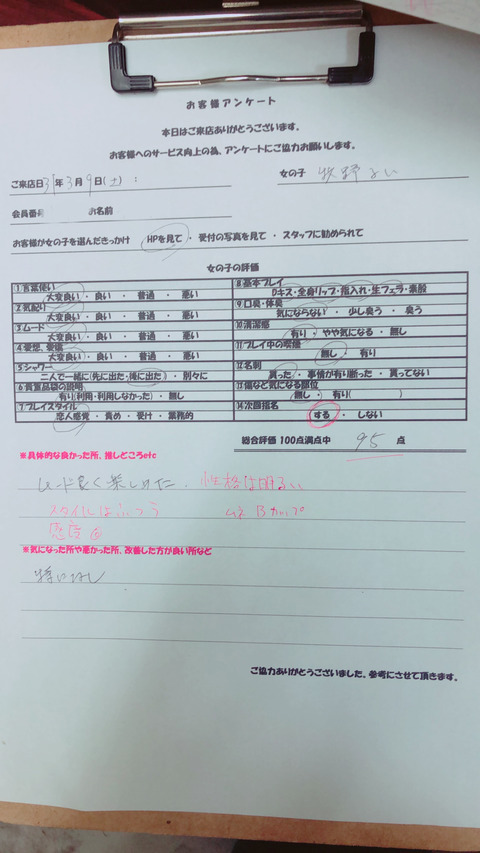 お客様アンケート
本日はご来店ありがとうございます。
お客様へのサービス向上の為、アンケートにご協力お願いします。
ご来店日 31年 3月 9日(土) :
女の子 牧野るい
会員番号 お名前
お客様が女の子を選んだきっかけ HPを見て ・ 受付の写真を見て ・ スタッフに勧められて
女の子の評価
1 言葉使い
大変良い ・ 良い ・ 普通 ・ 悪い
2 気配り
大変良い ・ 良い ・ 普通 ・ 悪い
3 ムード
大変良い ・ 良い ・ 普通 ・ 悪い
4 愛想、愛嬌
大変良い ・ 良い ・ 普通 ・ 悪い
5 シャワー
二人で一緒に(先に出た・後に出た) ・ 別々に
6 貴重品袋の説明
有り(利用・利用しなかった) ・ 無し
7 プレイスタイル
恋人感覚 ・ 責め ・ 受け ・ 業務的
8 基本プレイ
Dキス・全身リップ・指入れ・生フェラ・素股
9 口臭・体臭
気にならない ・ 少し臭う ・ 臭う
10 清潔感
有り ・ やや気になる ・ 無し
11 プレイ中の喫煙
無し ・ 有り
12 名刺
貰った ・ 事情が有り断った ・ 貰ってない
13 傷など気になる部位
無し ・ 有り( )
14 次回指名
する ・ しない
総合評価 100点満点中 95 点
※具体的な良かった所、推しどころetc
ムード良く楽しめた、性格は明るい
スタイルはふつう ムネ Bカップ
感度◎
※気になった所や悪かった所、改善した方が良い所など
特になし
ご協力ありがとうございました。参考にさせて頂きます。